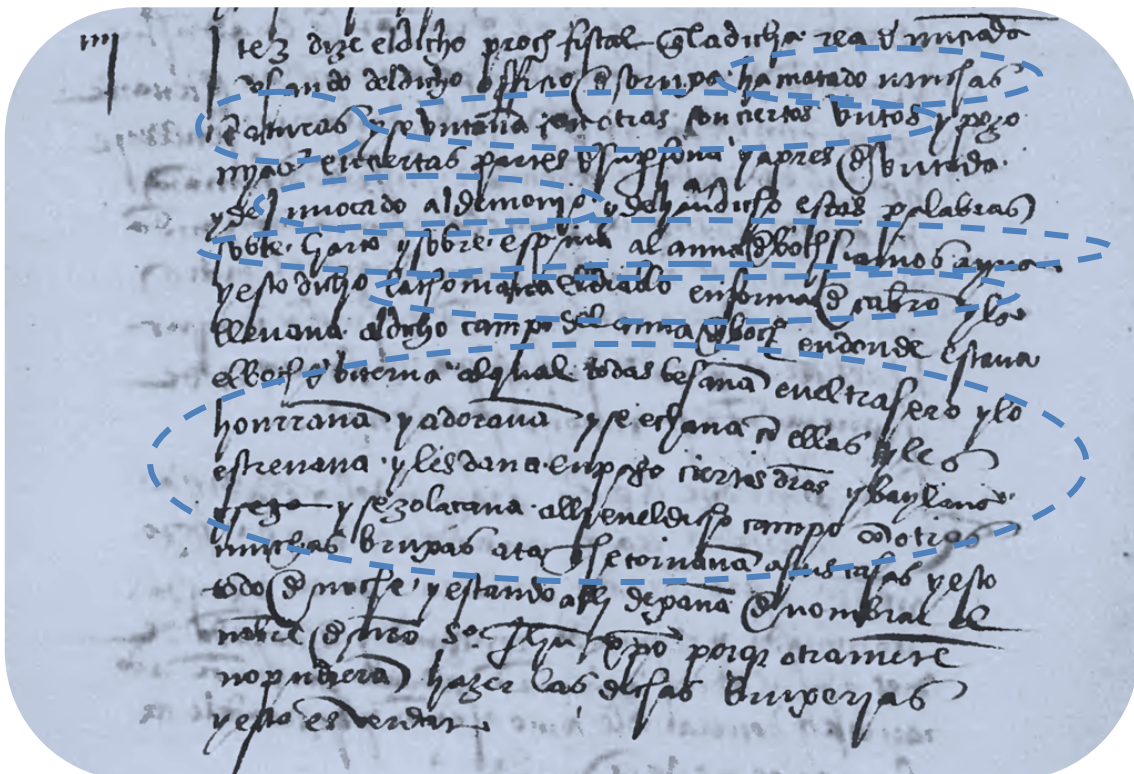 iiij
Itez dize el dicho proc fiscal q̃ la dicha rea d̃nunciada
usando del dicho officio d̃ bruxa ha matado muchas
criaturas y se vntaua con otras con ciertos vntos y pozo
nyas en ciertas partes d̃ su p̃sona y apres d̃ vntada
y de inuocado al demonjo y de hauer dicho estas palabras
sobre garo y sobre espina al anna d̃ boch siamos aqua
y esto dicho las tomaua el diablo en forma d̃ cabro y las
lleuaua al dicho campo del anna d̃ boch en donde estaua
el boch d̃ biterna al qual todas besauã en el trasero y lo
honrrauã y adorauã y se echaua cõ ellas y les
estrenaua y les daua en pago ciertos dros y baylauã
y se zolaçaua alli en el dicho campo cõ otras
muchas bruxas ata q̃ se tornauã a sus casas y esto
todo d̃ noche y estando alli dexauã d̃ nombrar el
nõbre d̃ nro sor jhu xpõ porq̃ otramẽte
no pudierã hazer las dichas bruxerjas
y esto es verdat